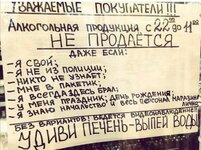 УВАЖАЕМЫЕ ПОКУПАТЕЛИ!!!
АЛКОГОЛЬНАЯ ПРОДУКЦИЯ С 22 00 ДО 11 00
НЕ ПРОДАЁТСЯ
ДАЖЕ ЕСЛИ:
- Я СВОЙ;
- Я НЕ ИЗ ПОЛИЦИИ;
- НИКТО НЕ УЗНАЕТ;
- МНЕ В ПАКЕТИК;
- Я ВСЕГДА ЗДЕСЬ БРАЛ;
- У МЕНЯ ПРАЗДНИК; ДЕНЬ РОЖДЕНИЯ;
- Я ЗНАЮ НАЧАЛЬСТВО И ВЕСЬ ПЕРСОНАЛ МАГАЗИНА
ЛИЧНО.
БЕЗ ВАРИАНТОВ! ВЕДЁТСЯ ВИДЕОНАБЛЮДЕНИЕ
УДИВИ ПЕЧЕНЬ-ВЫПЕЙ ВОДЫ